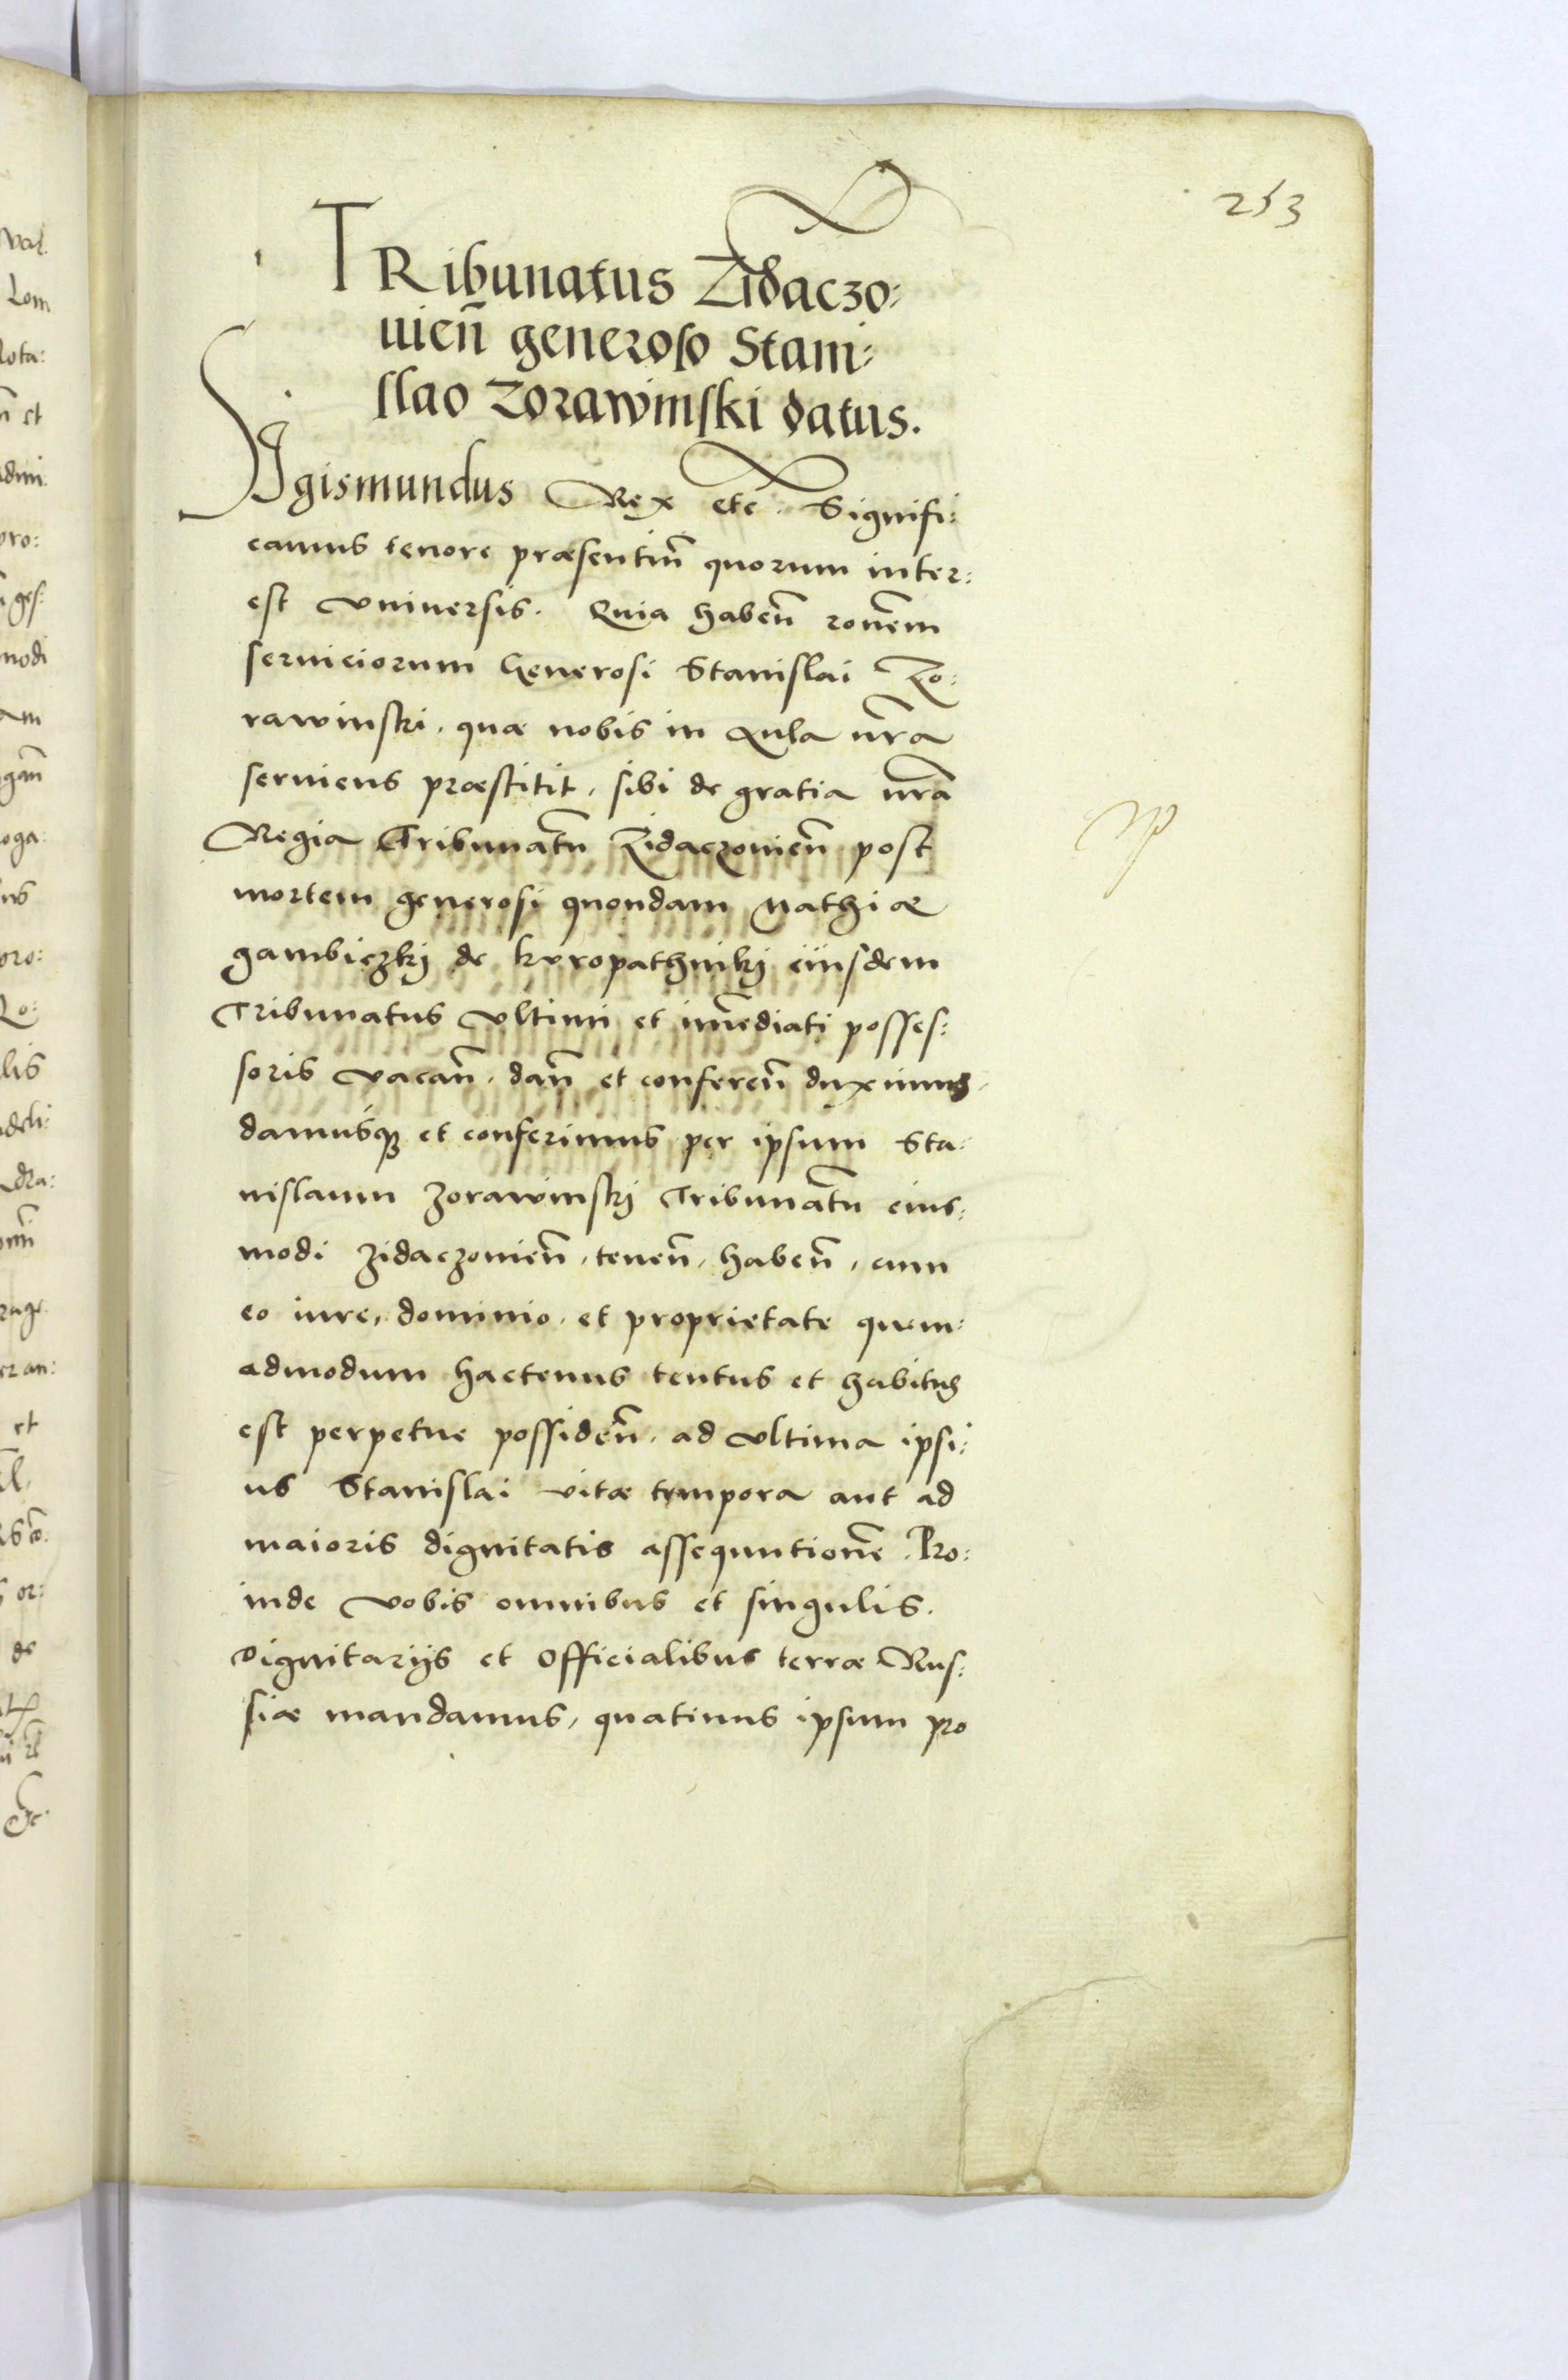 253
TRibunatus Zidaczo:
uien̄ generoso Stani:
slao Zorawinski datus.
Sigismundus Rex etc̄. Signifi:
camus tenore præsentiū quorum inter:
est vniuersis. Quia haben̄ ronēm
seruiciorum Generosi Stanislai Zo:
rawinski, quæ nobis in Aula nr̄a
seruiens præstitit, sibi de gratia nr̄a
Regia Tribunatū Zidaczouien̄ post
mortem generosi quondam Mathiæ
gambiczkj de kuropathnikj eiusdem
Tribunatus vltimi et im̄ediati posses:
soris vacan̄, dan̄ et conferen̄ duximus,
damusq3 et conferimus per ipsum Sta:
nislaum Zorawinskj Tribunatū eius:
modi Zidaczouien̄, tenen̄, haben̄, cum
eo iure, dominio, et proprietate quem:
admodum hactenus tentus et habitus
est perpetue possiden̄, ad vltima ipsi:
us Stanislai vitæ tempora aut ad
maioris dignitatis assequutionē. Pro:
inde vobis omnibus et singulis.
Dignitarijs et Officialibus terræ Rus:
siæ mandamus, quatinus ipsum pro